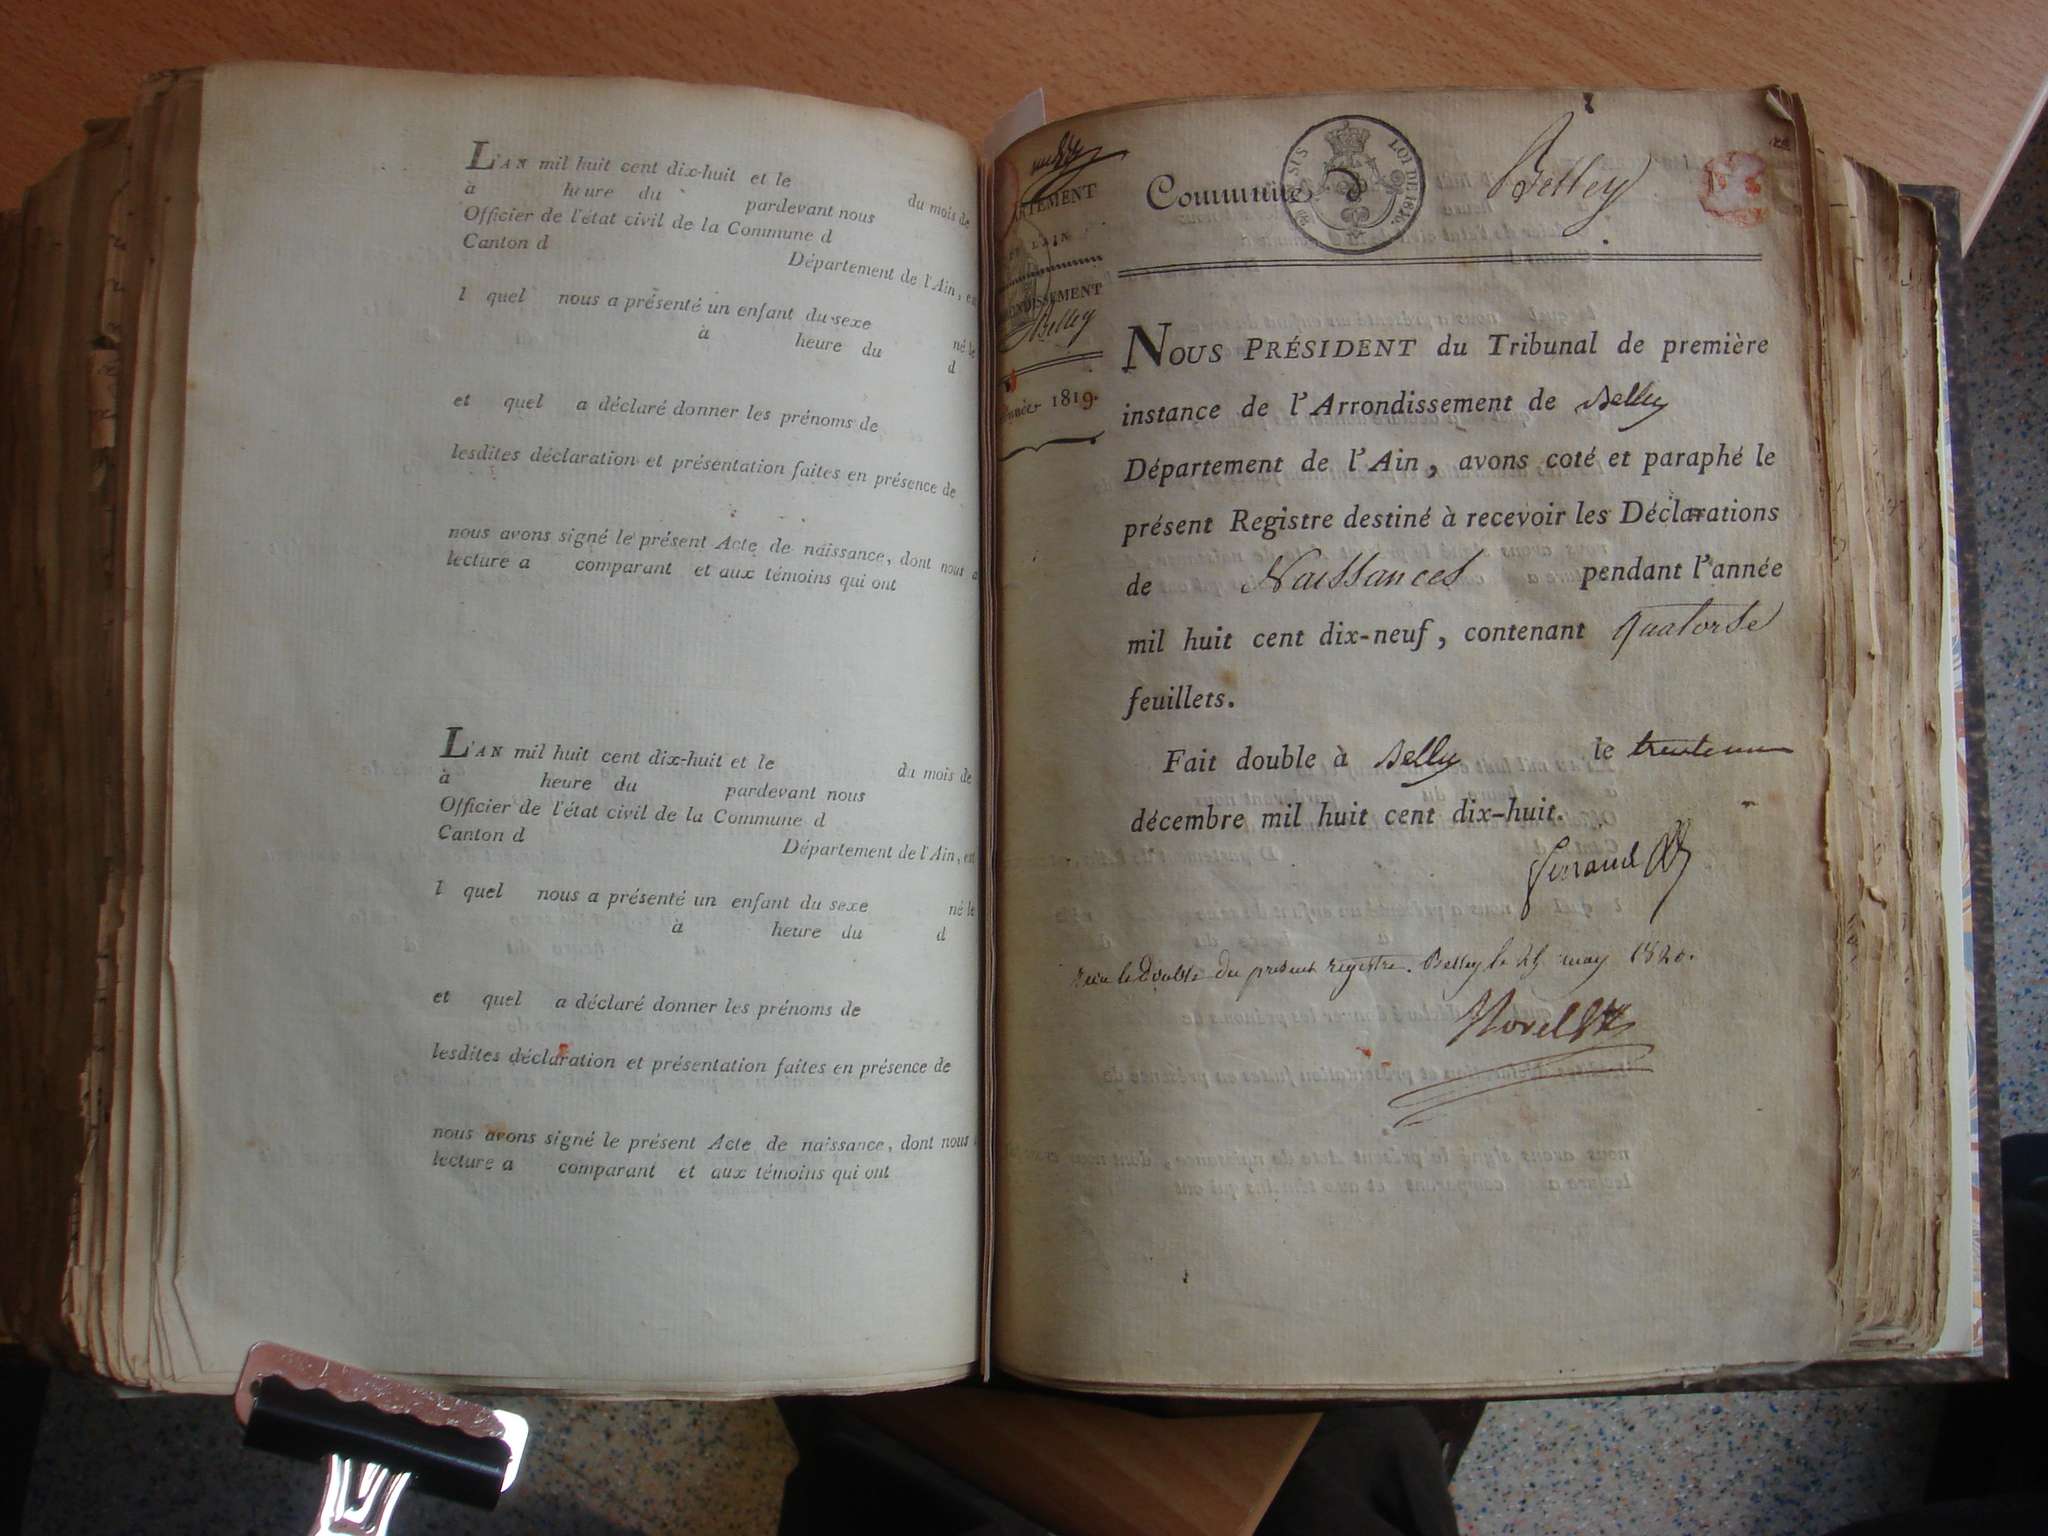 L'AN mil huit cent dix-huit et le du mois de
à heure du pardevant nous
Officier de l'état civil de la Commune d
Canton d
Département de l'Ain, est
l quel nous a présenté un enfant du sexe né le
à heure du d
et quel a déclaré donner les prénoms de
lesdites déclaration et présentation faites en présence de
nous avons signé le présent Acte de naissance, dont nous a
lecture a comparant et aux témoins qui ont
L'AN mil huit cent dix-huit et le du mois de
à heure du pardevant nous
Officier de l'état civil de la Commune d
Canton d
Département de l'Ain, est
l quel nous a présenté un enfant du sexe né le
à heure du d
et quel a déclaré donner les prénoms de
lesdites déclaration et présentation faites en présence de
nous avons signé le présent Acte de naissance, dont nous
lecture a comparant et aux témoins qui ont
ARTEMENT
L'AIN
ONDISSEMENT
Belley
Année 1819.
Commune d Belley
LOI DE 1816.
NOUS PRÉSIDENT du Tribunal de première
instance de l'Arrondissement de Belley
Département de l'Ain, avons coté et paraphé le
présent Registre destiné à recevoir les Déclarations
de Naissances pendant l'année
mil huit cent dix-neuf, contenant quatorse
feuillets.
Fait double à Belley le trente un
décembre mil huit cent dix-huit.
le Double du présent registre. Belley le may 1820.